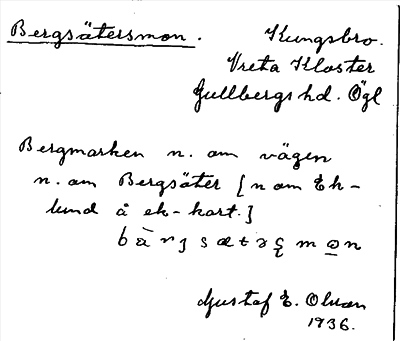 Bergsätersmon.
Kungsbro.
Vreta Kloster
Gullbergs hd. Ögl
Bergmarken n. om vägen
n. om Bergsäter [n om Ek-
lund å ek-kart.]
Gustaf E. Olsson
1936.